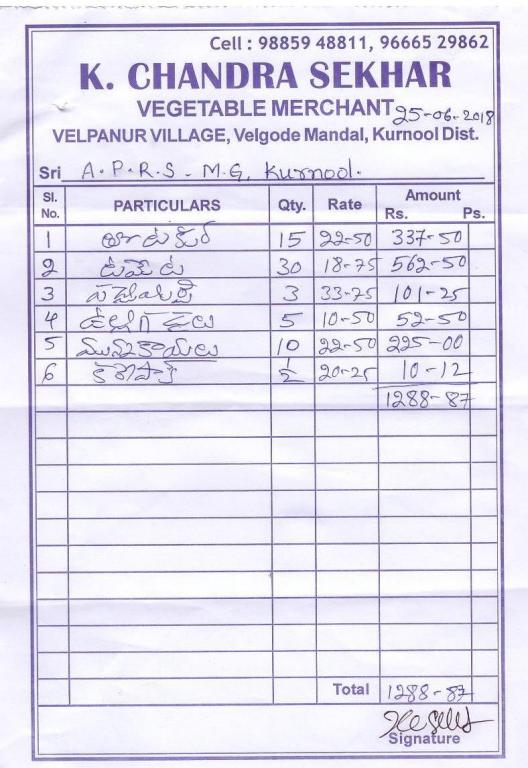 Cell : 98859 48811, 96665 29862
K. CHANDRA SEKHAR
VEGETABLE MERCHANT 25-06-2018
VELPANUR VILLAGE, Velgode Mandal, Kurnool Dist.
Sri A.P.R.S - M.G, Kurnool.
Sl. No. PARTICULARS Qty. Rate Amount Rs. Ps.
1 15 22-50 337-50
2 టమోట 30 18-75 562-50
3 పచ్చిమిర్చి 3 33-75 101-25
4 ఉల్లిగడ్డలు 5 10-50 52-50
5 మునగకాయలు 10 22-50 225-00
6 1/2 20-25 10-12
1288-87
Total 1288-87
Signature